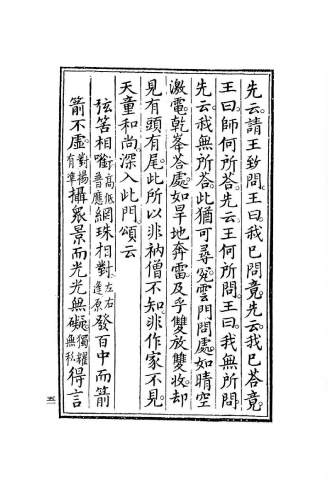 先云請王致問王曰我已問竟先云我已荅竟
王曰師何所荅先云王何所問王曰我無所問
先云我無所荅此猶可尋究雲門問處如晴空
激電乾峯荅處如旱地奔雷及乎雙放雙收却
見有頭有尾此所以非衲僧不知非作家不見
天童和尚深入此門頌云
弦筈相啣高低普應網珠相對左右逢原發百中而箭
箭不虛對揚有準攝衆景而光光無礙獨耀無私得言
五